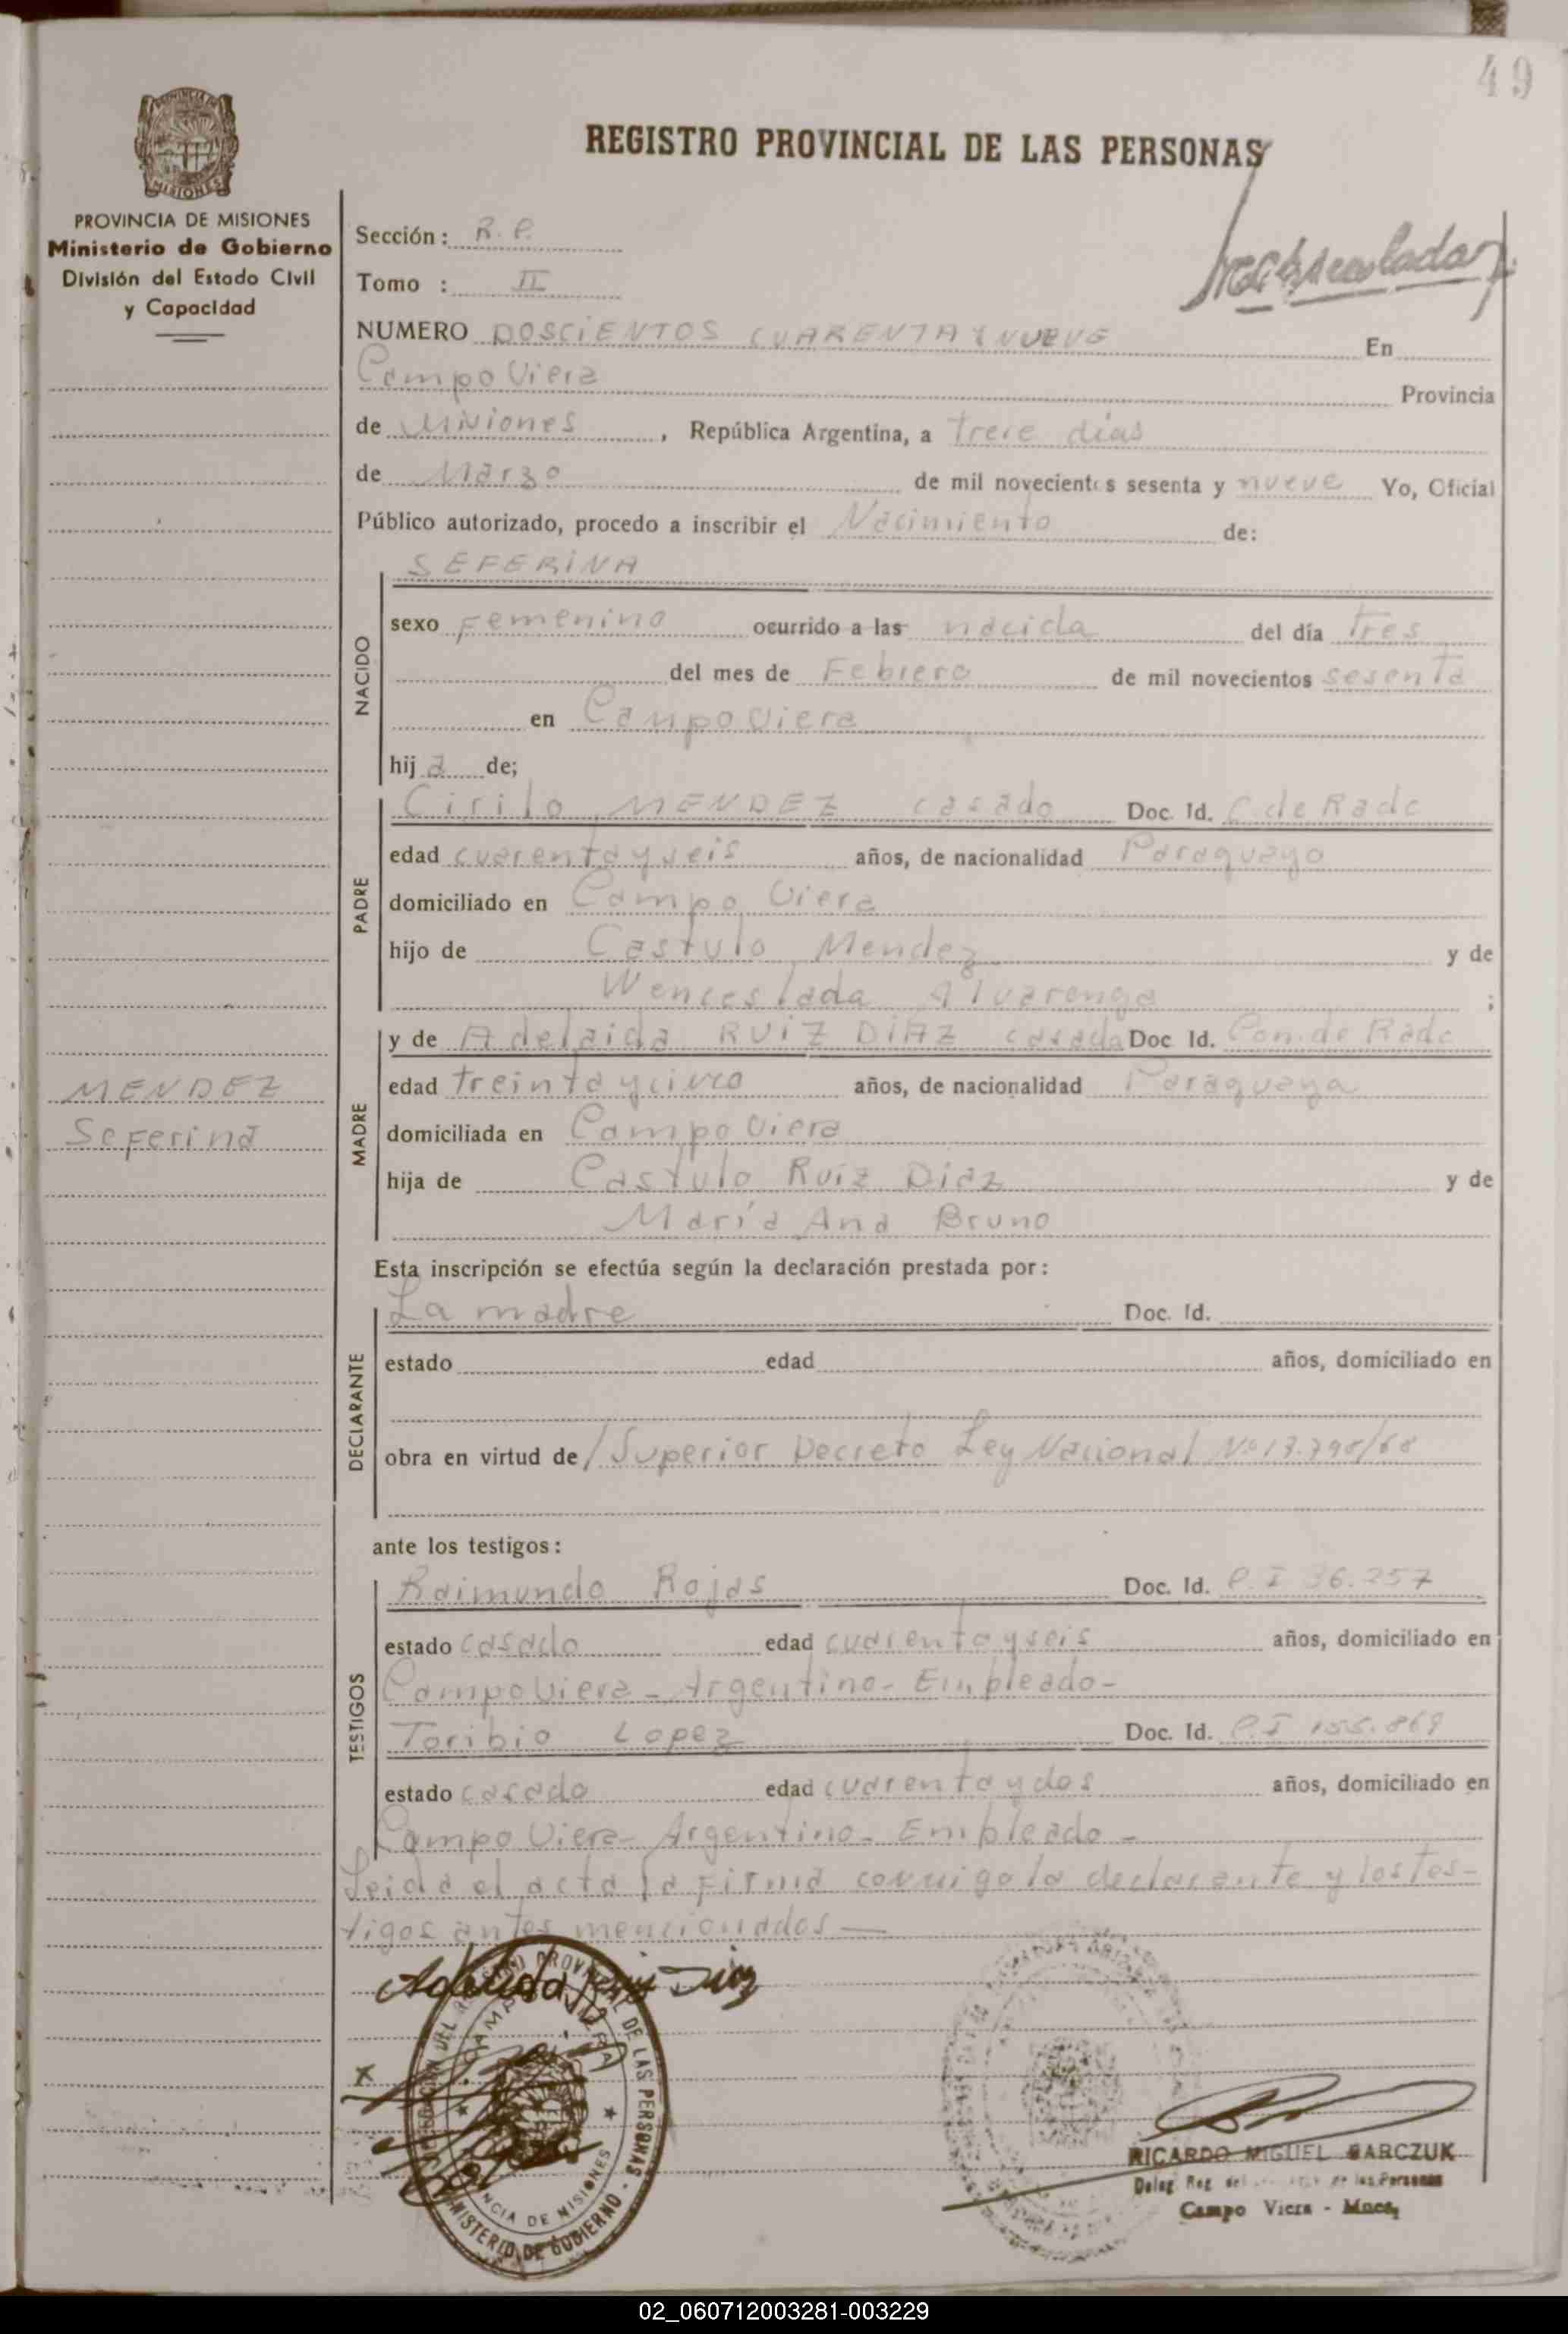 49
PROVINCIA DE MISIONES
Ministerio de Gobierno
División del Estado Civil
y Capacidad
REGISTRO PROVINCIAL DE LAS PERSONAS
Sección: R. P.
Tomo : II
NUMERO DOSCIENTOS CUARENTA Y NUEVE En
Campo Viera Provincia
de Misiones, República Argentina, a trece días
de Marzo de mil novecientos sesenta y nueve Yo, Oficial
Público autorizado, procedo a inscribir el Nacimiento de:
NACIDO
SEFERINA
sexo Femenino ocurrido a las nacida del día tres
del mes de Febrero de mil novecientos sesenta
en Campo Viera
hija de;
PADRE
Cirilo MENDEZ casado Doc. Id. C de Radc
edad cuarenta y seis años, de nacionalidad Paraguayo
domiciliado en Campo Viera
hijo de Castulo Mendez y de
Wenceslada Alvarenga ;
MENDEZ
Seferina
MADRE
y de Adelaida RUIZ DIAZ casada Doc Id. Con. de Radc
edad treinta y cinco años, de nacionalidad Paraguaya
domiciliada en Campo Viera
hija de Castulo Ruiz Diaz y de
María Ana Bruno
Esta inscripción se efectúa según la declaración prestada por:
DECLARANTE
La madre Doc. Id.
estado edad años, domiciliado en
obra en virtud de / Superior Decreto Ley Nacional
ante los testigos:
TESTIGOS
Raimundo Rojas Doc. Id. C. I 36.257
estado casado edad cuarenta y seis años, domiciliado en
Campo Viera - Argentino - Empleado -
Toribio Lopez Doc. Id. C. I 155.869
estado casado edad cuarenta y dos años, domiciliado en
Campo Viera - Argentino - Empleado -
Leida el acta la firma conmigo la declarante y los tes-
tigos antes mencionados —
Adelaida Ruiz Diaz
x
CAMPO VIERA
PROVINCIAL DE LAS PERSONAS - MINISTERIO DE GOBIERNO
PROVINCIA DE MISIONES
RICARDO MIGUEL BARCZUK
Deleg. Reg. de las Personas
Campo Viera - Mnes.
02_060712003281-003229